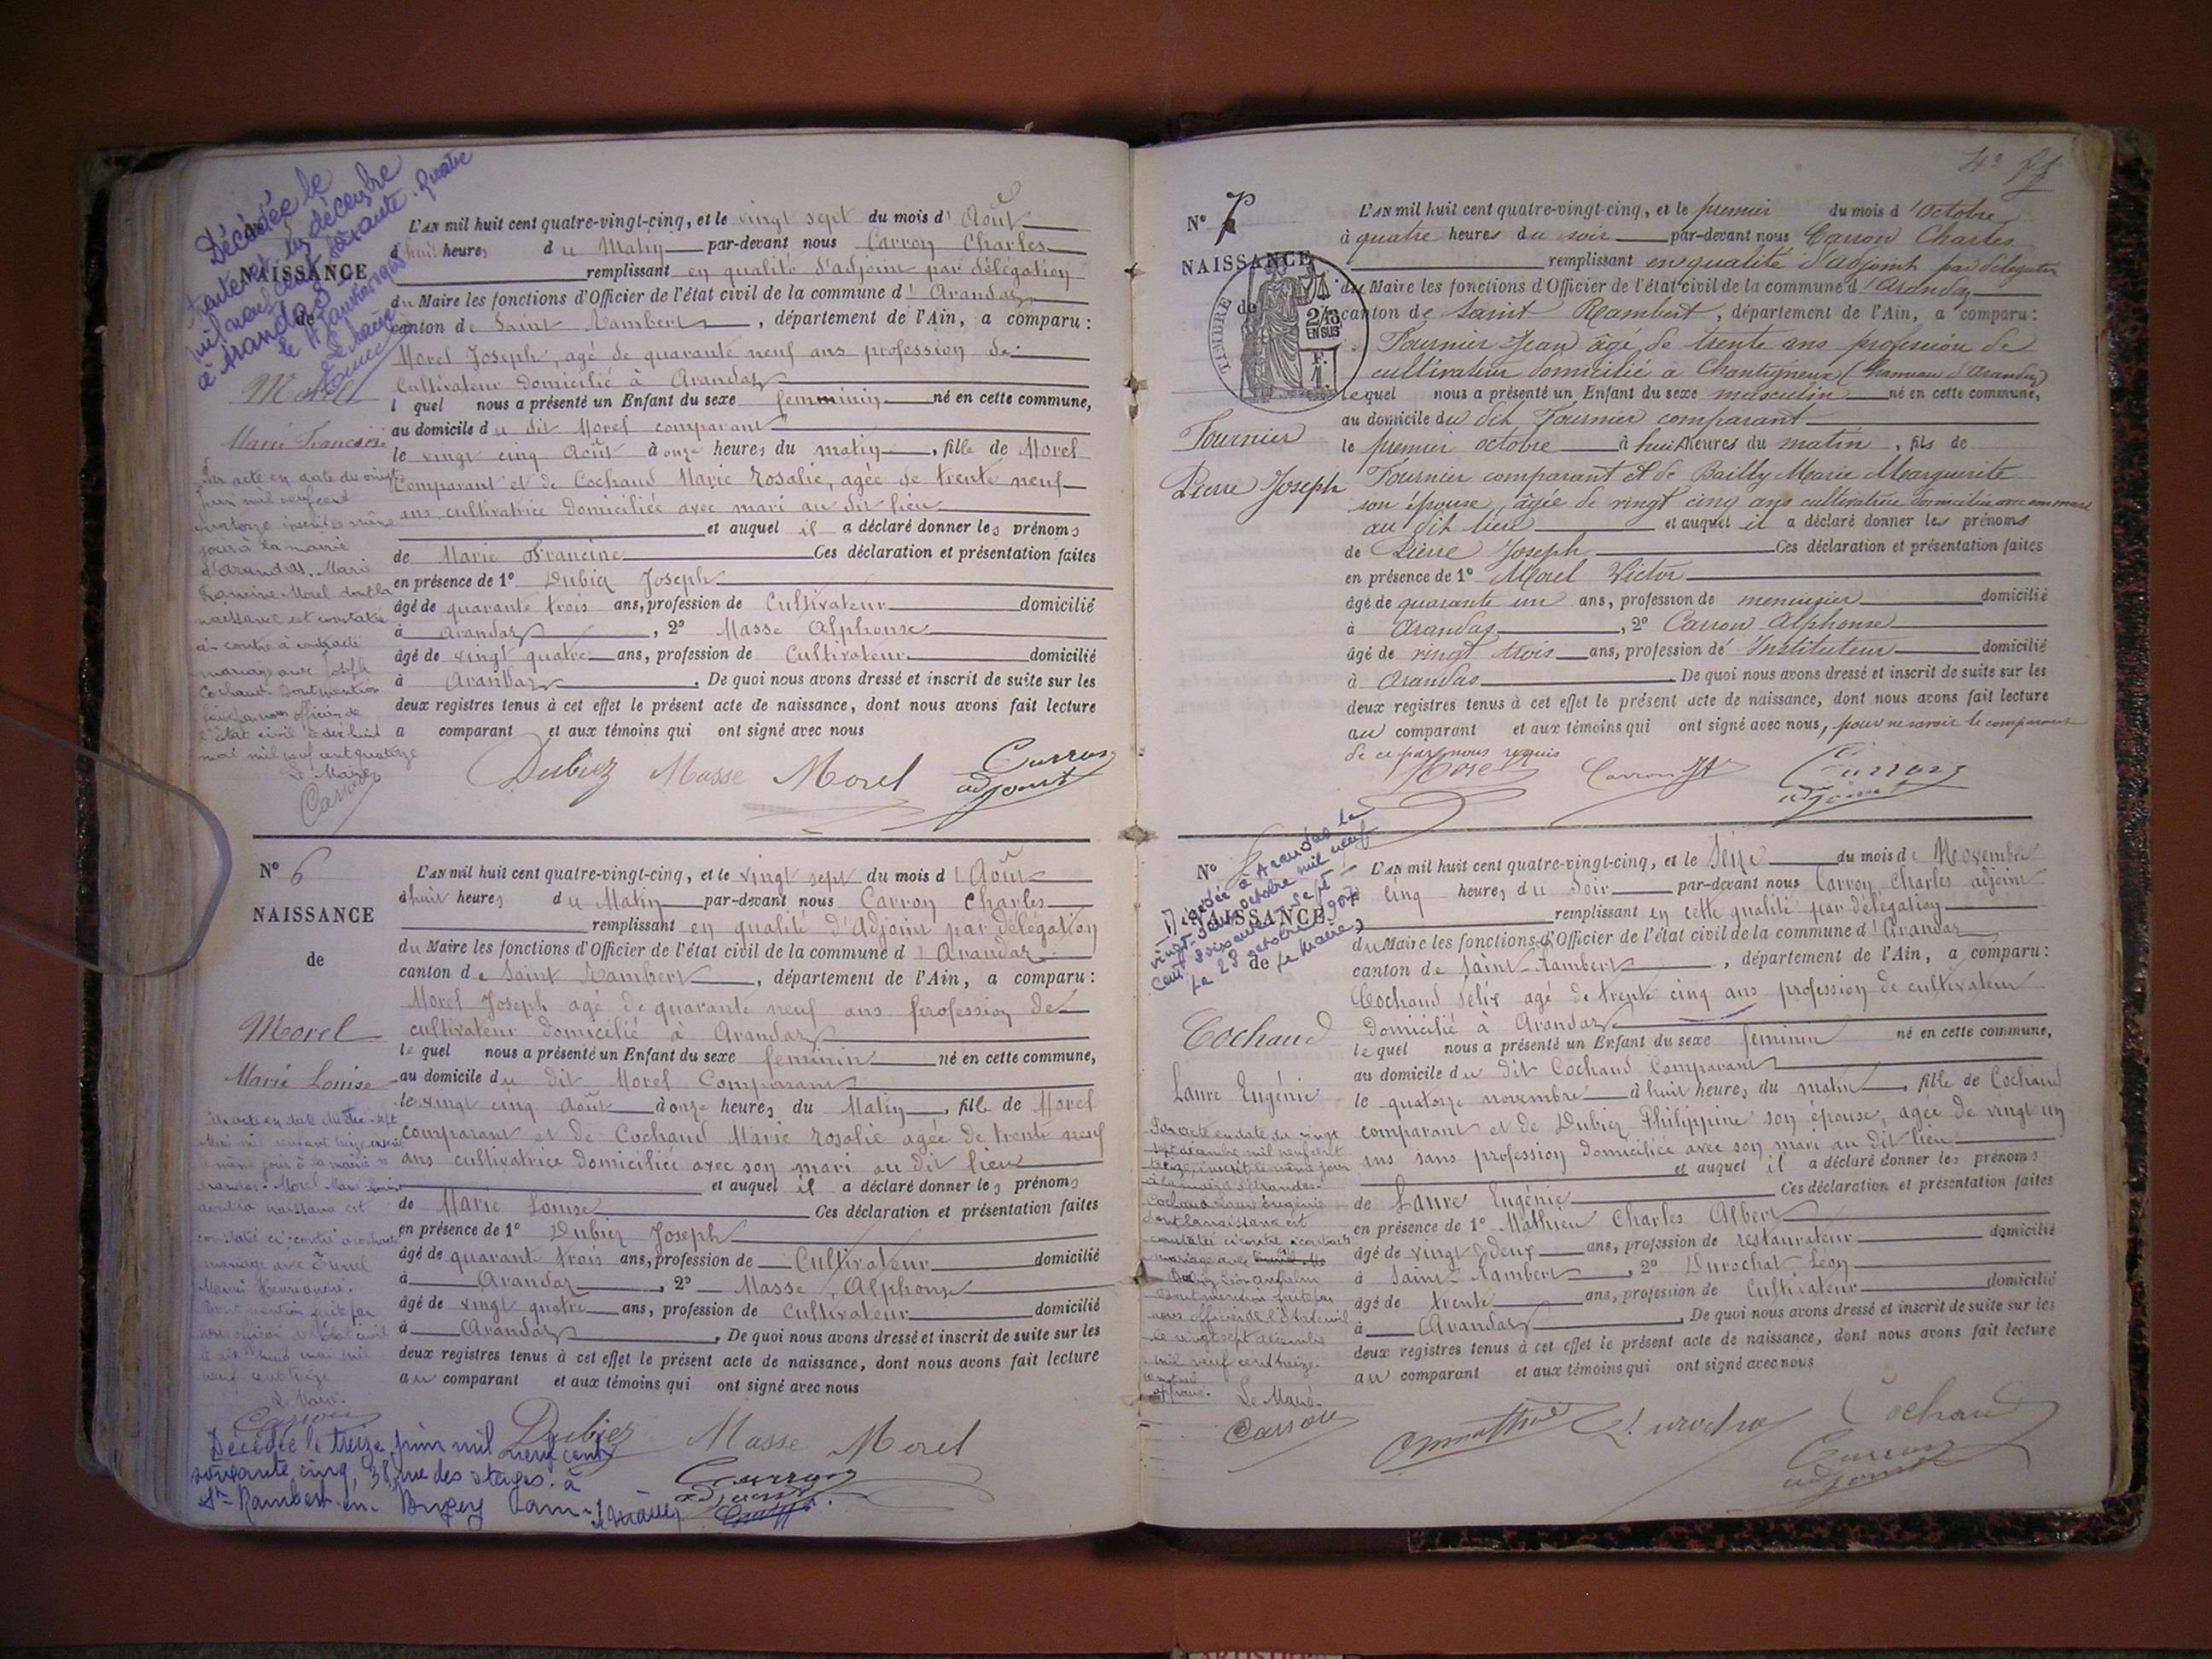 Décédée le
trente et un décembre
mil neuf cent soixante-quatre
à Arandas
le Maire
NAISSANCE
de
Morel
Marie Francine
Par acte en date du vingt
mil neuf cent
quatorze inscrit le même
jour à la mairie
d'Arandas. Marie
Francine Morel dont la
naissance est constatée
ci-contre a contracté
mariage avec Joseph
Cochaud. Dont mention
faite par nous officier de
l'état civil le dix huit
mai mil neuf cent quatorze
Le Maire
Carron
L'AN mil huit cent quatre-vingt-cinq, et le vingt sept du mois d'Août
à huit heures du Matin par-devant nous Carron Charles
remplissant en qualité d'adjoint par délégation
du Maire les fonctions d'Officier de l'état civil de la commune d'Arandas
canton de Saint Rambert, département de l'Ain, a comparu :
Morel Joseph, agé de quarante neuf ans profession de
Cultivateur domicilié à Arandas
lequel nous a présenté un Enfant du sexe femminin né en cette commune,
au domicile du dit Morel comparant
le vingt cinq Août à onze heures du matin, fille de Morel
Comparant et de Cochaud Marie Rosalie, agée de trente neuf
ans cultivatrice domiciliée avec mari au dit lieu
et auquel il a déclaré donner les prénoms
de Marie Francine Ces déclaration et présentation faites
en présence de 1º Dubiez Joseph
âgé de quarante trois ans, profession de Cultivateur domicilié
à Arandas, 2º Masse Alphonse
âgé de vingt quatre ans, profession de Cultivateur domicilié
à Arandas. De quoi nous avons dressé et inscrit de suite sur les
deux registres tenus à cet effet le présent acte de naissance, dont nous avons fait lecture
a comparant et aux témoins qui ont signé avec nous
Dubiez Masse Morel Carron
adjoint
Nº 6
NAISSANCE
de
Morel
Marie Louise
Par acte en date du dix-sept
Mai mil neuf cent treize inscrit
le même jour à la mairie d'
Arandas. Morel Marie Louise
dont la naissance est
constatée ci-contre a contracté
mariage avec
Marie Henri André.
Dont mention faite par
nous officier de l'état civil
le dix huit mai mil
neuf cent treize
Le Maire.
Carron
Décédée le treize juin mil neuf cent
soixante cinq, 38, rue des stages. à
St Rambert-en-Bugey (Ain) le Maire
L'AN mil huit cent quatre-vingt-cinq, et le vingt sept du mois d'Août
à huit heures du Matin par-devant nous Carron Charles
remplissant en qualité d'Adjoint par délégation
du Maire les fonctions d'Officier de l'état civil de la commune d'Arandas
canton de Saint Rambert, département de l'Ain, a comparu :
Morel Joseph agé de quarante neuf ans profession de
cultivateur domicilié à Arandas
lequel nous a présenté un Enfant du sexe feminin né en cette commune,
au domicile du dit Morel Comparant
le vingt cinq Août à onze heures du Matin, fille de Morel
comparant et de Cochaud Marie Rosalie agée de trente neuf
ans cultivatrice domiciliée avec son mari au dit lieu
et auquel il a déclaré donner les prénoms
de Marie Louise Ces déclaration et présentation faites
en présence de 1º Dubiez Joseph
âgé de quarant trois ans, profession de Cultivateur domicilié
à Arandas, 2º Masse Alphonse
âgé de vingt quatre ans, profession de Cultivateur domicilié
à Arandas. De quoi nous avons dressé et inscrit de suite sur les
deux registres tenus à cet effet le présent acte de naissance, dont nous avons fait lecture
au comparant et aux témoins qui ont signé avec nous
Dubiez Masse Morel
Carron
adjoint
4e
Nº 7
NAISSANCE
de
TIMBRE
2/10
EN SUS
F.
1.
Fournier
Pierre Joseph
L'AN mil huit cent quatre-vingt-cinq, et le premier du mois d'Octobre
à quatre heures du soir par-devant nous Carron Charles
remplissant en qualité d'adjoint par délégation
du Maire les fonctions d'Officier de l'état civil de la commune d'Arandas
canton de Saint Rambert, département de l'Ain, a comparu :
Fournier Jean âgé de trente ans profession de
cultivateur domicilié à Chantigneux (hameau d'Arandas)
lequel nous a présenté un Enfant du sexe masculin né en cette commune,
au domicile du dit Fournier comparant
le premier octobre à huit heures du matin, fils de
Fournier comparant et de Bailly Marie Marguerite
son épouse, âgée de vingt cinq ans cultivatrice domiciliée avec son mari
au dit lieu et auquel il a déclaré donner les prénoms
de Pierre Joseph Ces déclaration et présentation faites
en présence de 1º Morel Victor
âgé de quarante un ans, profession de menuisier domicilié
à Arandas, 2º Carron Alphonse
âgé de vingt trois ans, profession de Instituteur domicilié
à Arandas. De quoi nous avons dressé et inscrit de suite sur les
deux registres tenus à cet effet le présent acte de naissance, dont nous avons fait lecture
au comparant et aux témoins qui ont signé avec nous, pour ne savoir le comparant
de ce par nous requis
Morel Carron Carron
adjoint
Nº 8
NAISSANCE
de
Décédée à Arandas le
vingt-deux octobre mil neuf
cent soixante-sept
le 23 octobre 1967
Le Maire
Cochaud
Laure Eugénie
Par acte en date du vingt
sept décembre mil neuf cent
treize, inscrit le même jour
à la mairie d'Arandas.
Cochaud Laure Eugénie
dont la naissance est
constatée ci-contre a contracté
mariage avec
Léon Anthelme
Dont mention faite par
nous officier de l'état civil
le vingt sept décembre
mil neuf cent treize.
Le Maire.
Carron
L'AN mil huit cent quatre-vingt-cinq, et le Seize du mois de Novembre
cinq heures du Soir par-devant nous Carron Charles adjoint
remplissant en cette qualité par délégation
du Maire les fonctions d'Officier de l'état civil de la commune d'Arandas
canton de Saint-Rambert, département de l'Ain, a comparu :
Cochaud Félix agé de trente cinq ans profession de cultivateur
domicilié à Arandas
lequel nous a présenté un Enfant du sexe feminin né en cette commune,
au domicile du dit Cochaud Comparant
le quatorze novembre à huit heures du matin, fille de Cochaud
comparant et de Dubiez Philippine son épouse, agée de vingt un
ans sans profession domiciliée avec son mari au dit lieu
et auquel il a déclaré donner les prénoms
de Laure Eugénie Ces déclaration et présentation faites
en présence de 1º Mathieu Charles Albert
âgé de vingt deux ans, profession de restaurateur domicilié
à Saint-Rambert, 2º Durochat Léon
âgé de trente ans, profession de Cultivateur domicilié
à Arandas. De quoi nous avons dressé et inscrit de suite sur les
deux registres tenus à cet effet le présent acte de naissance, dont nous avons fait lecture
au comparant et aux témoins qui ont signé avec nous
Durochat Cochaud
Carron
adjoint